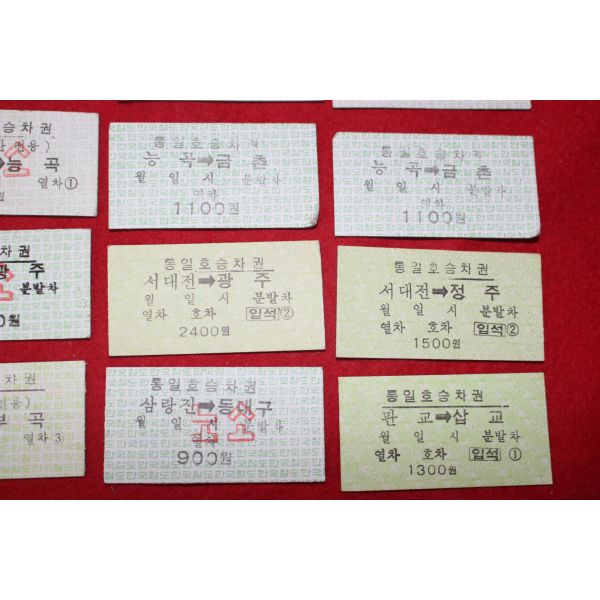 승차권
전용)
➡능 곡
열차①
원
통일호승차권
능 곡➡금 촌
월 일 시 분발차
열차
1100원
통일호승차권
능 곡➡금 촌
월 일 시 분발차
열차
1100원
승차권
광 주
분발차
0원
통일호승차권
서대전➡광 주
월 일 시 분발차
열차 호차 입석②
2400원
통일호승차권
서대전➡정 주
월 일 시 분발차
열차 호차 입석②
1500원
차권
전용)
부 곡
열차③
통일호승차권
삼랑진➡동대구
월 일 시 분발차
열차
900원
통일호승차권
판 교➡삽 교
월 일 시 분발차
열차 호차 입석 ①
1300원